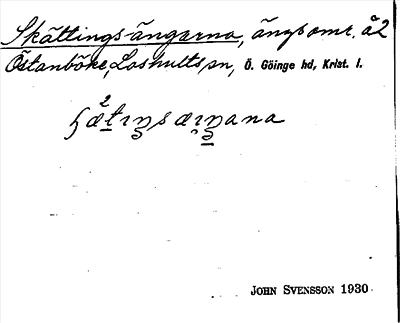 Skättings-ängarna, ängsomr. å2
Östanböke, Loshults sn, Ö. Göinge hd, Krist. l.
JOHN SVENSSON 1930